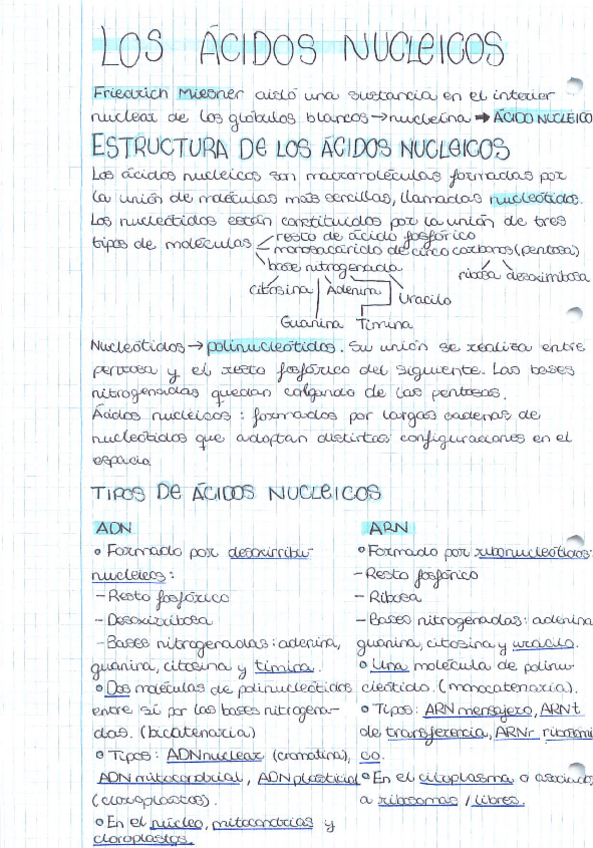 LOS ÁCIDOS NUCLEICOS
Friedrich Miesner aisló una sustancia en el interior
nuclear de los glóbulos blancos → nucleína → ÁCIDO NUCLÉICO
ESTRUCTURA DE LOS ÁCIDOS NUCLEICOS
Los ácidos nucleicos son macromoléculas formadas por
la unión de moléculas más sencillas, llamadas nucleótidos.
Los nucleótidos están constituidos por la unión de tres
tipos de moléculas
resto de ácido fosfórico
monosacárido de cinco carbonos (pentosa)
base nitrogenada
ribosa desoxirribosa
Citosina Adenina Uracilo
Guanina Timina
Nucleótidos → polinucleótidos. Su unión se realiza entre
pentosa y el resto fosfórico del siguiente. Las bases
nitrogenadas quedan colgando de las pentosas.
Ácidos nucleicos: formados por largas cadenas de
nucleótidos que adoptan distintas configuraciones en el
espacio
TIPOS DE ÁCIDOS NUCLEICOS
ADN
• Formado por desoxirribu-
nucleicos:
- Resto fosfórico
- Desoxirribosa
- Bases nitrogenadas: adenina,
guanina, citosina y timina.
• Dos moléculas de polinucleótidos
entre sí por las bases nitrogena-
das. (bicatenaria)
• Tipos: ADN nuclear (cromatina),
ADN mitocondrial, ADN plastidial
(cloroplastos).
• En el núcleo, mitocondrias y
cloroplastos.
ARN
• Formado por ribonucleótidos:
- Resto fosfórico
- Ribosa
- Bases nitrogenadas: adenina
guanina, citosina y uracilo.
• Una molécula de polinu-
cleótido. (monocatenaria).
• Tipos: ARN mensajero, ARNt
de transferencia, ARNr ribosómi
co.
• En el citoplasma o asociado
a ribosomas / libres.